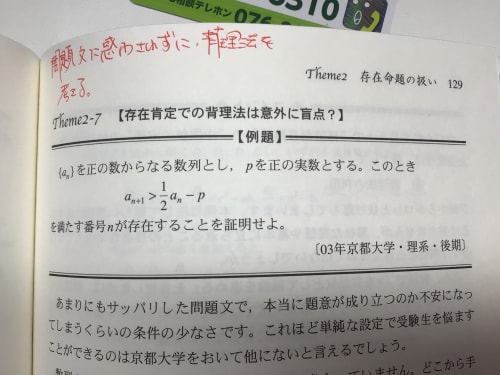 相談テレホン 076
0310
問題文に惑わされずに、背理法を
考える。
Theme2 存在命題の扱い 129
Theme2-7 【存在肯定での背理法は意外に盲点？】
【例題】
{aₙ}を正の数からなる数列とし，pを正の実数とする。このとき
aₙ₊₁ > 1/2 aₙ − p
を満たす番号nが存在することを証明せよ。
〔03年京都大学・理系・後期〕
あまりにもサッパリした問題文で，本当に題意が成り立つのか不安になっ
てしまうくらいの条件の少なさです。これほど単純な設定で受験生を悩ます
ことができるのは京都大学をおいて他にないと言えるでしょう。